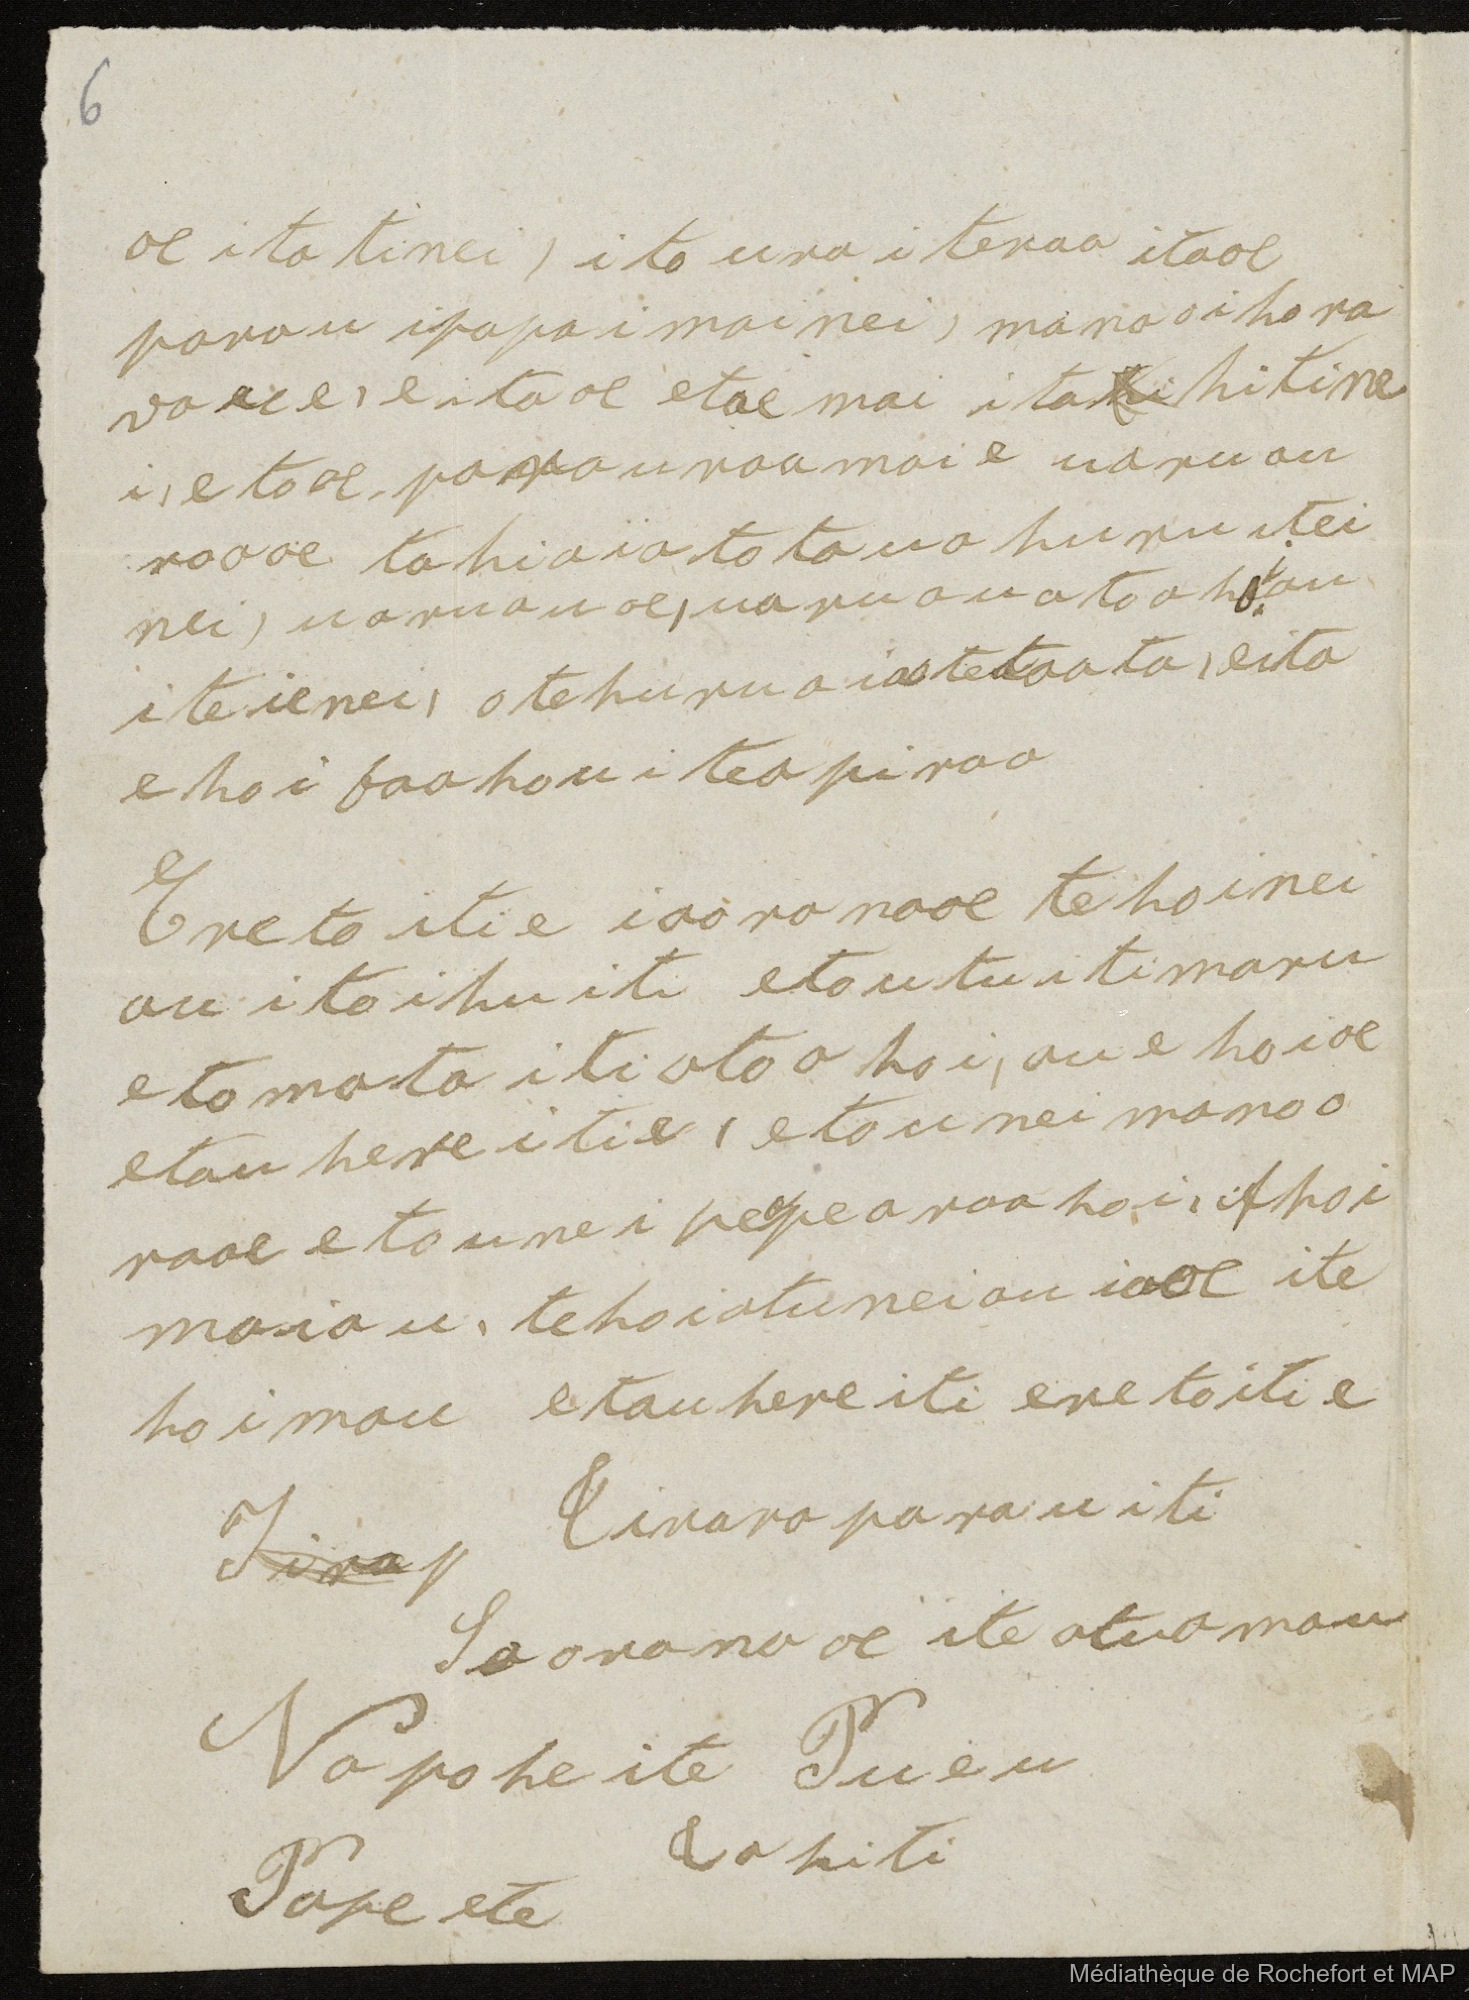 6
oe itatinei, ito uraiteraa itaoe
parau ipapaimainei, manaoihora
vauee, eitaoe etae mai ita hitine
i, etaoe parauraa maie uaruau
raaoe tahiaiatotauahuruitei
nei, uaruauoe, uaruauatoahoiau
iteienei, otehuruaiaetetaata, eita
ehoi faahouiteapiraa
Eretoitie iaoranaoe tehoinei
au itoihuiti etoutuitimaru
etomataitiatoa hoi, aue hoioe
etauhereitie, etounei manao
raoe etounei pepearaahoi, ahoi
maiau, tehoiatuneiau iaoe ite
hoimau etauhereiti eretoitie
Tirap Tirara parauiti
Iaoranaoe iteatuamau
Napoheite Pueu
Tahiti
Papeete
Médiathèque de Rochefort et MAP